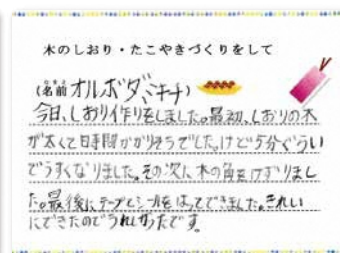 木のしおり・たこやきづくりをして
(名前 オルボダミキナ)
今日、しおり作りをしました。最初、しおりの木
が太くて日時間がかりそうでした。けど5分ぐらい
でうすくなりました。その次に木の角をけずりまし
た。最後に、テープとシールをはってできました。きれい
にできたのでうれしかったです。